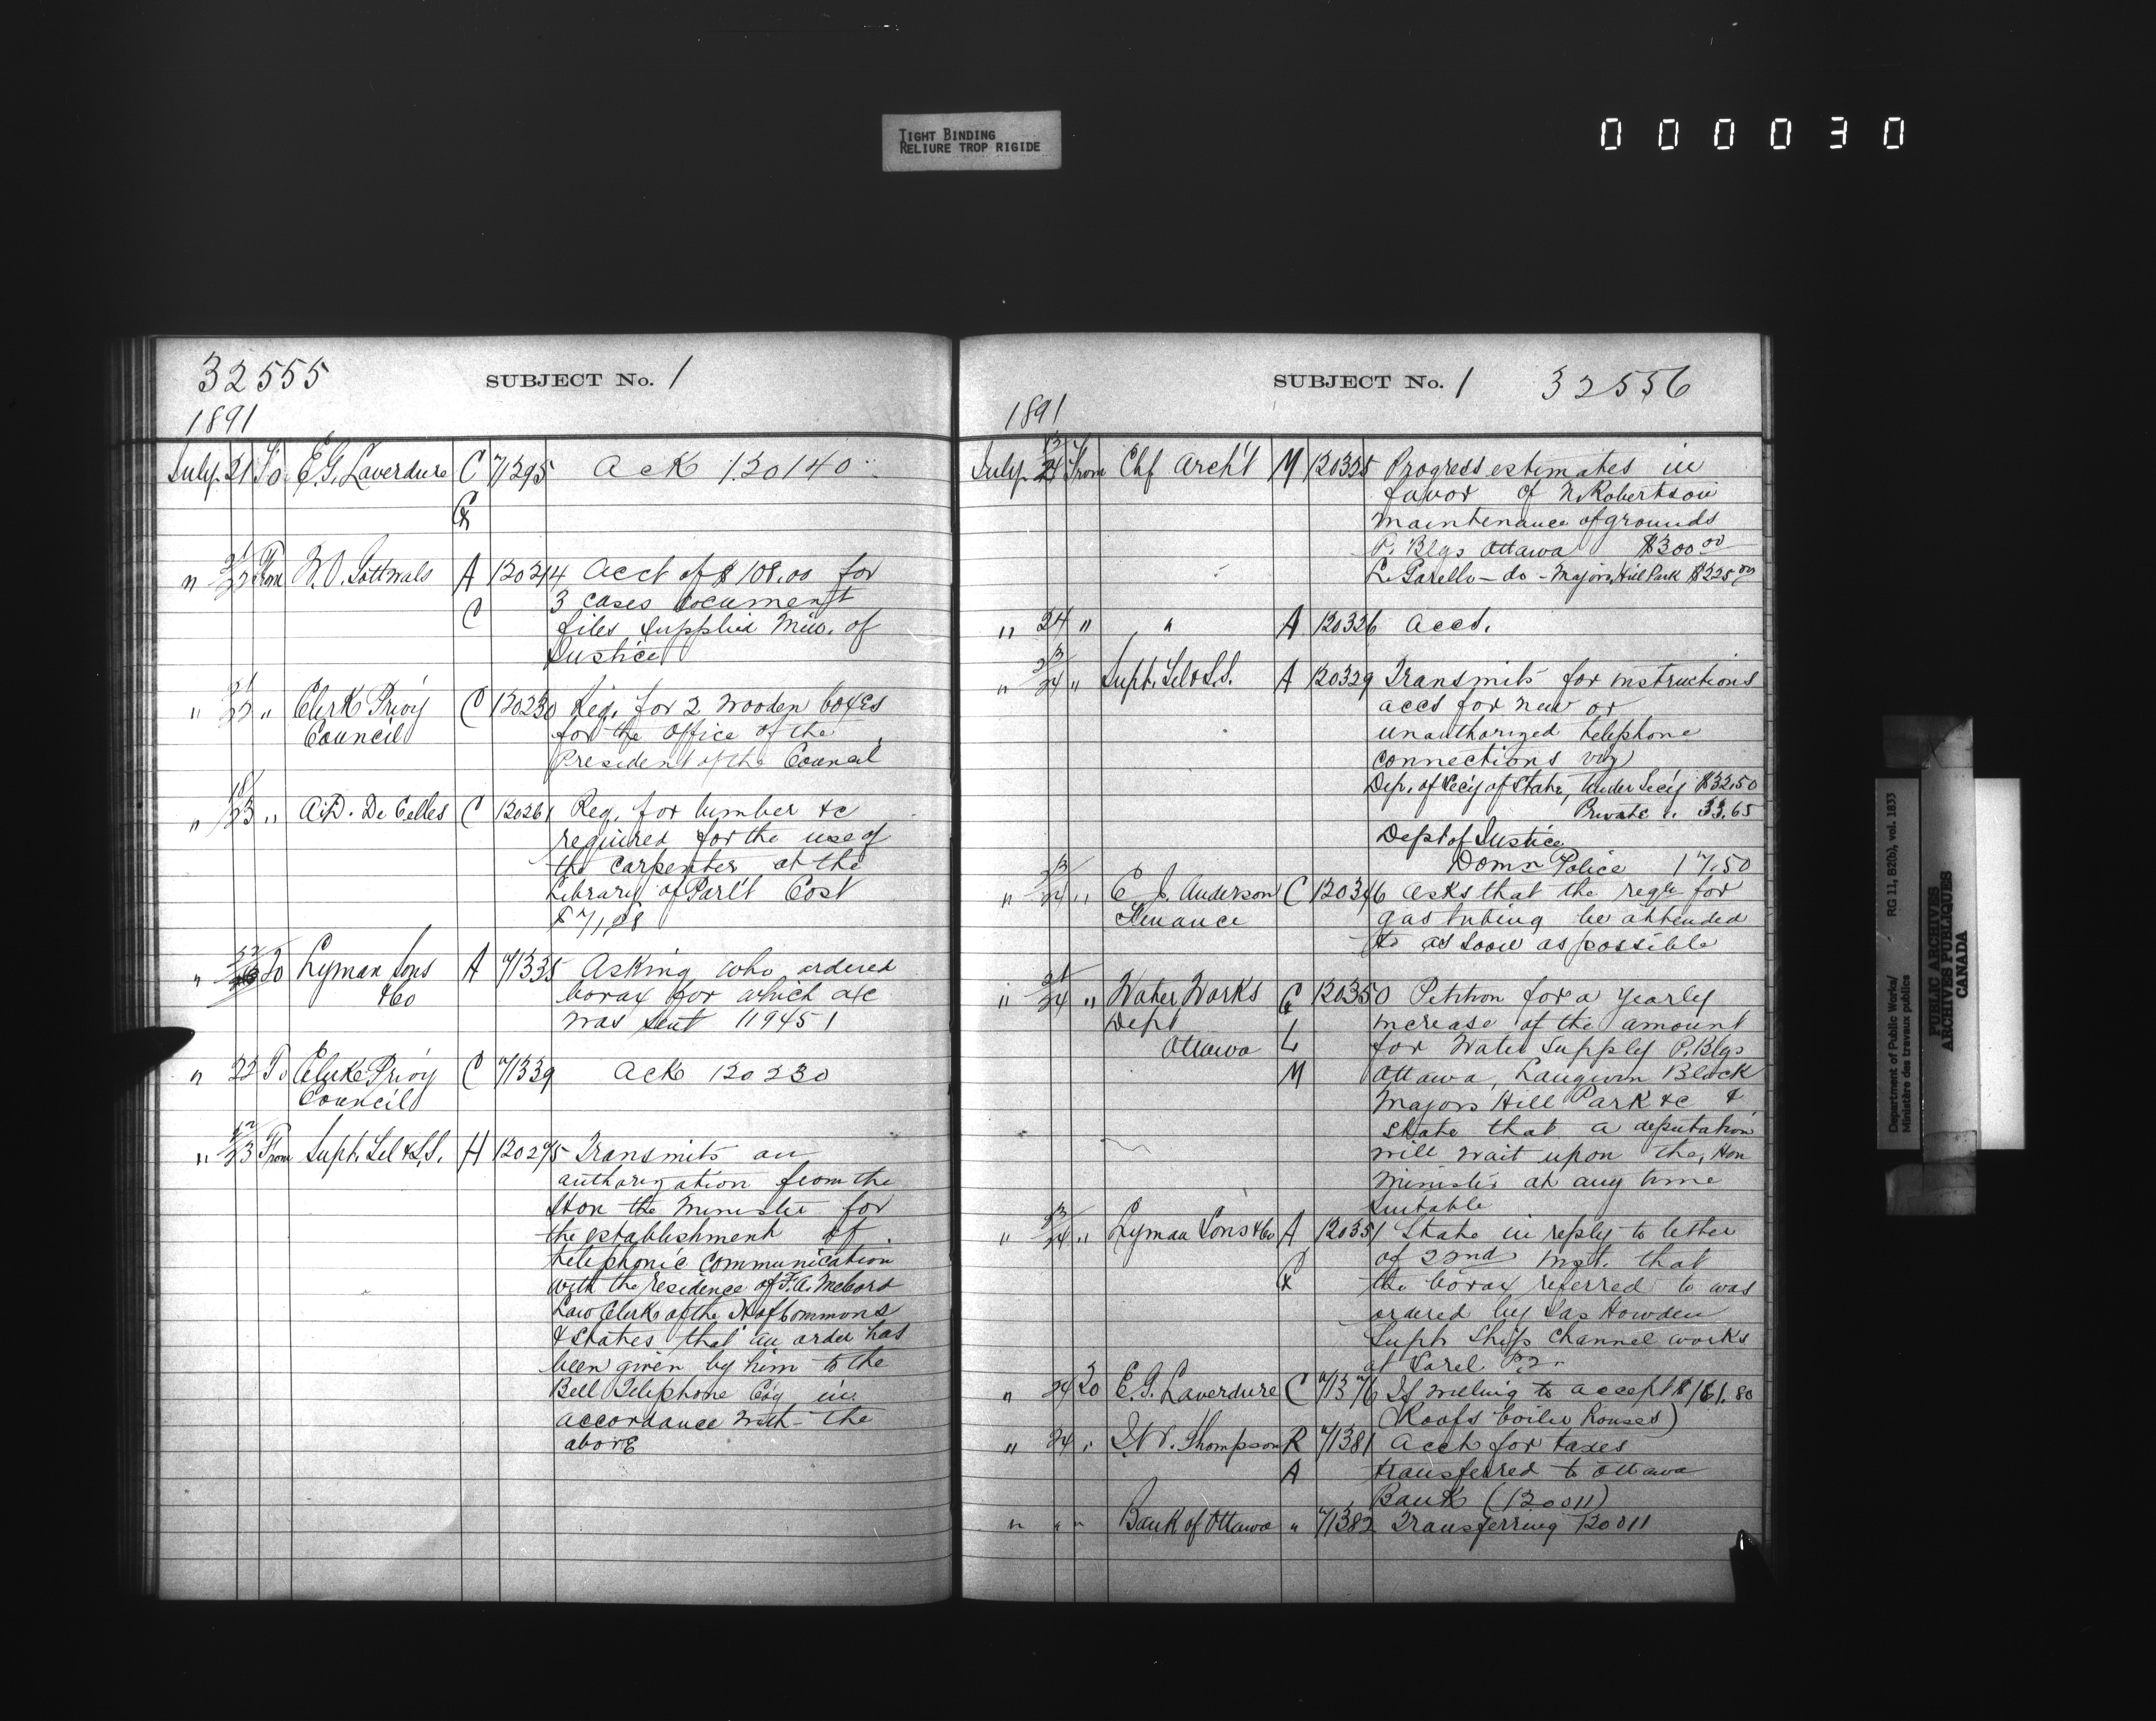 TIGHT BINDING
RELIURE TROP RIGIDE
000030
32555 SUBJECT No. 1
1891
July 21 To E.G. Laverdure C 71295 Ack 120140
&
" 21/22 From A 120214 Acct of $108.00 for
C 3 cases document
files supplied Min. of
Justice
" 21/22 " Clerk Privy C 120230 Req. for 2 wooden boxes
Council for the Office of the
President of the Council
" 18/23 " A.D. De Celles C 120261 Req. for lumber &c
required for the use of
the carpenter at the
Library of Parl't Cost
$71,88
" 22 To Lyman Sons A 71335 Asking who ordered
&Co borax for which a/c
was sent 119451
" 22 To Clerk Privy C 71339 Ack 120230
Council
" 22/23 From Supt. Tel & S.S. H 120275 Transmits an
authorization from the
Hon the Minister for
the establishment of
telephonic communication
with the residence of F.A. McCord
Law Clerk of the H of Commons
& states that an order has
been given by him to the
Bell Telephone Co'y in
accordance with the
above
SUBJECT No. 1 32556
1891
July 23/24 From Chf Arch't M 120325 Progress estimates in
favor of N. Robertson
maintenance of grounds
P. Blgs Ottawa $300 00
- do - Majors Hill Park $225 00
" 24 " " A 120326 Accs.
" 23/24 " Supt. Tel & S.S. A 120329 Transmits for instructions
accs for new or
unauthorized telephone
connections viz
Dep. of Sec'y of State, Under Sec'y $32.50
Private " 33.65
Dept of Justice
Domn Police 17.50
" 23/24 " E. J. Anderson C 120346 Asks that the reqn for
Finance gas tubing be attended
to as soon as possible
" 21/24 " Water Works C 120350 Petition for a yearly
Dept & increase of the amount
Ottawa L for Water Supply P. Blgs
M Ottawa, Langevin Block
Majors Hill Park &c &
state that a deputation
will wait upon the Hon
Minister at any time
suitable
" 23/24 " Lyman Sons &Co A 120351 State in reply to letter
of 22nd inst. that
C & the borax referred to was
ordered by Jas Howden
Supt Ship Channel works
at Sorel P.Q.
" 24 To E.G. Laverdure C 71376 If willing to accept $161.80
(Roofs boiler houses)
" 24 " Thompson R 71381 Acct for taxes
A transferred to Ottawa
Bank (120011)
" " " Bank of Ottawa " 71382 Transferring 120011
Department of Public Works/
Ministère des travaux publics
RG 11, B2(b), vol. 1833
PUBLIC ARCHIVES
ARCHIVES PUBLIQUES
CANADA